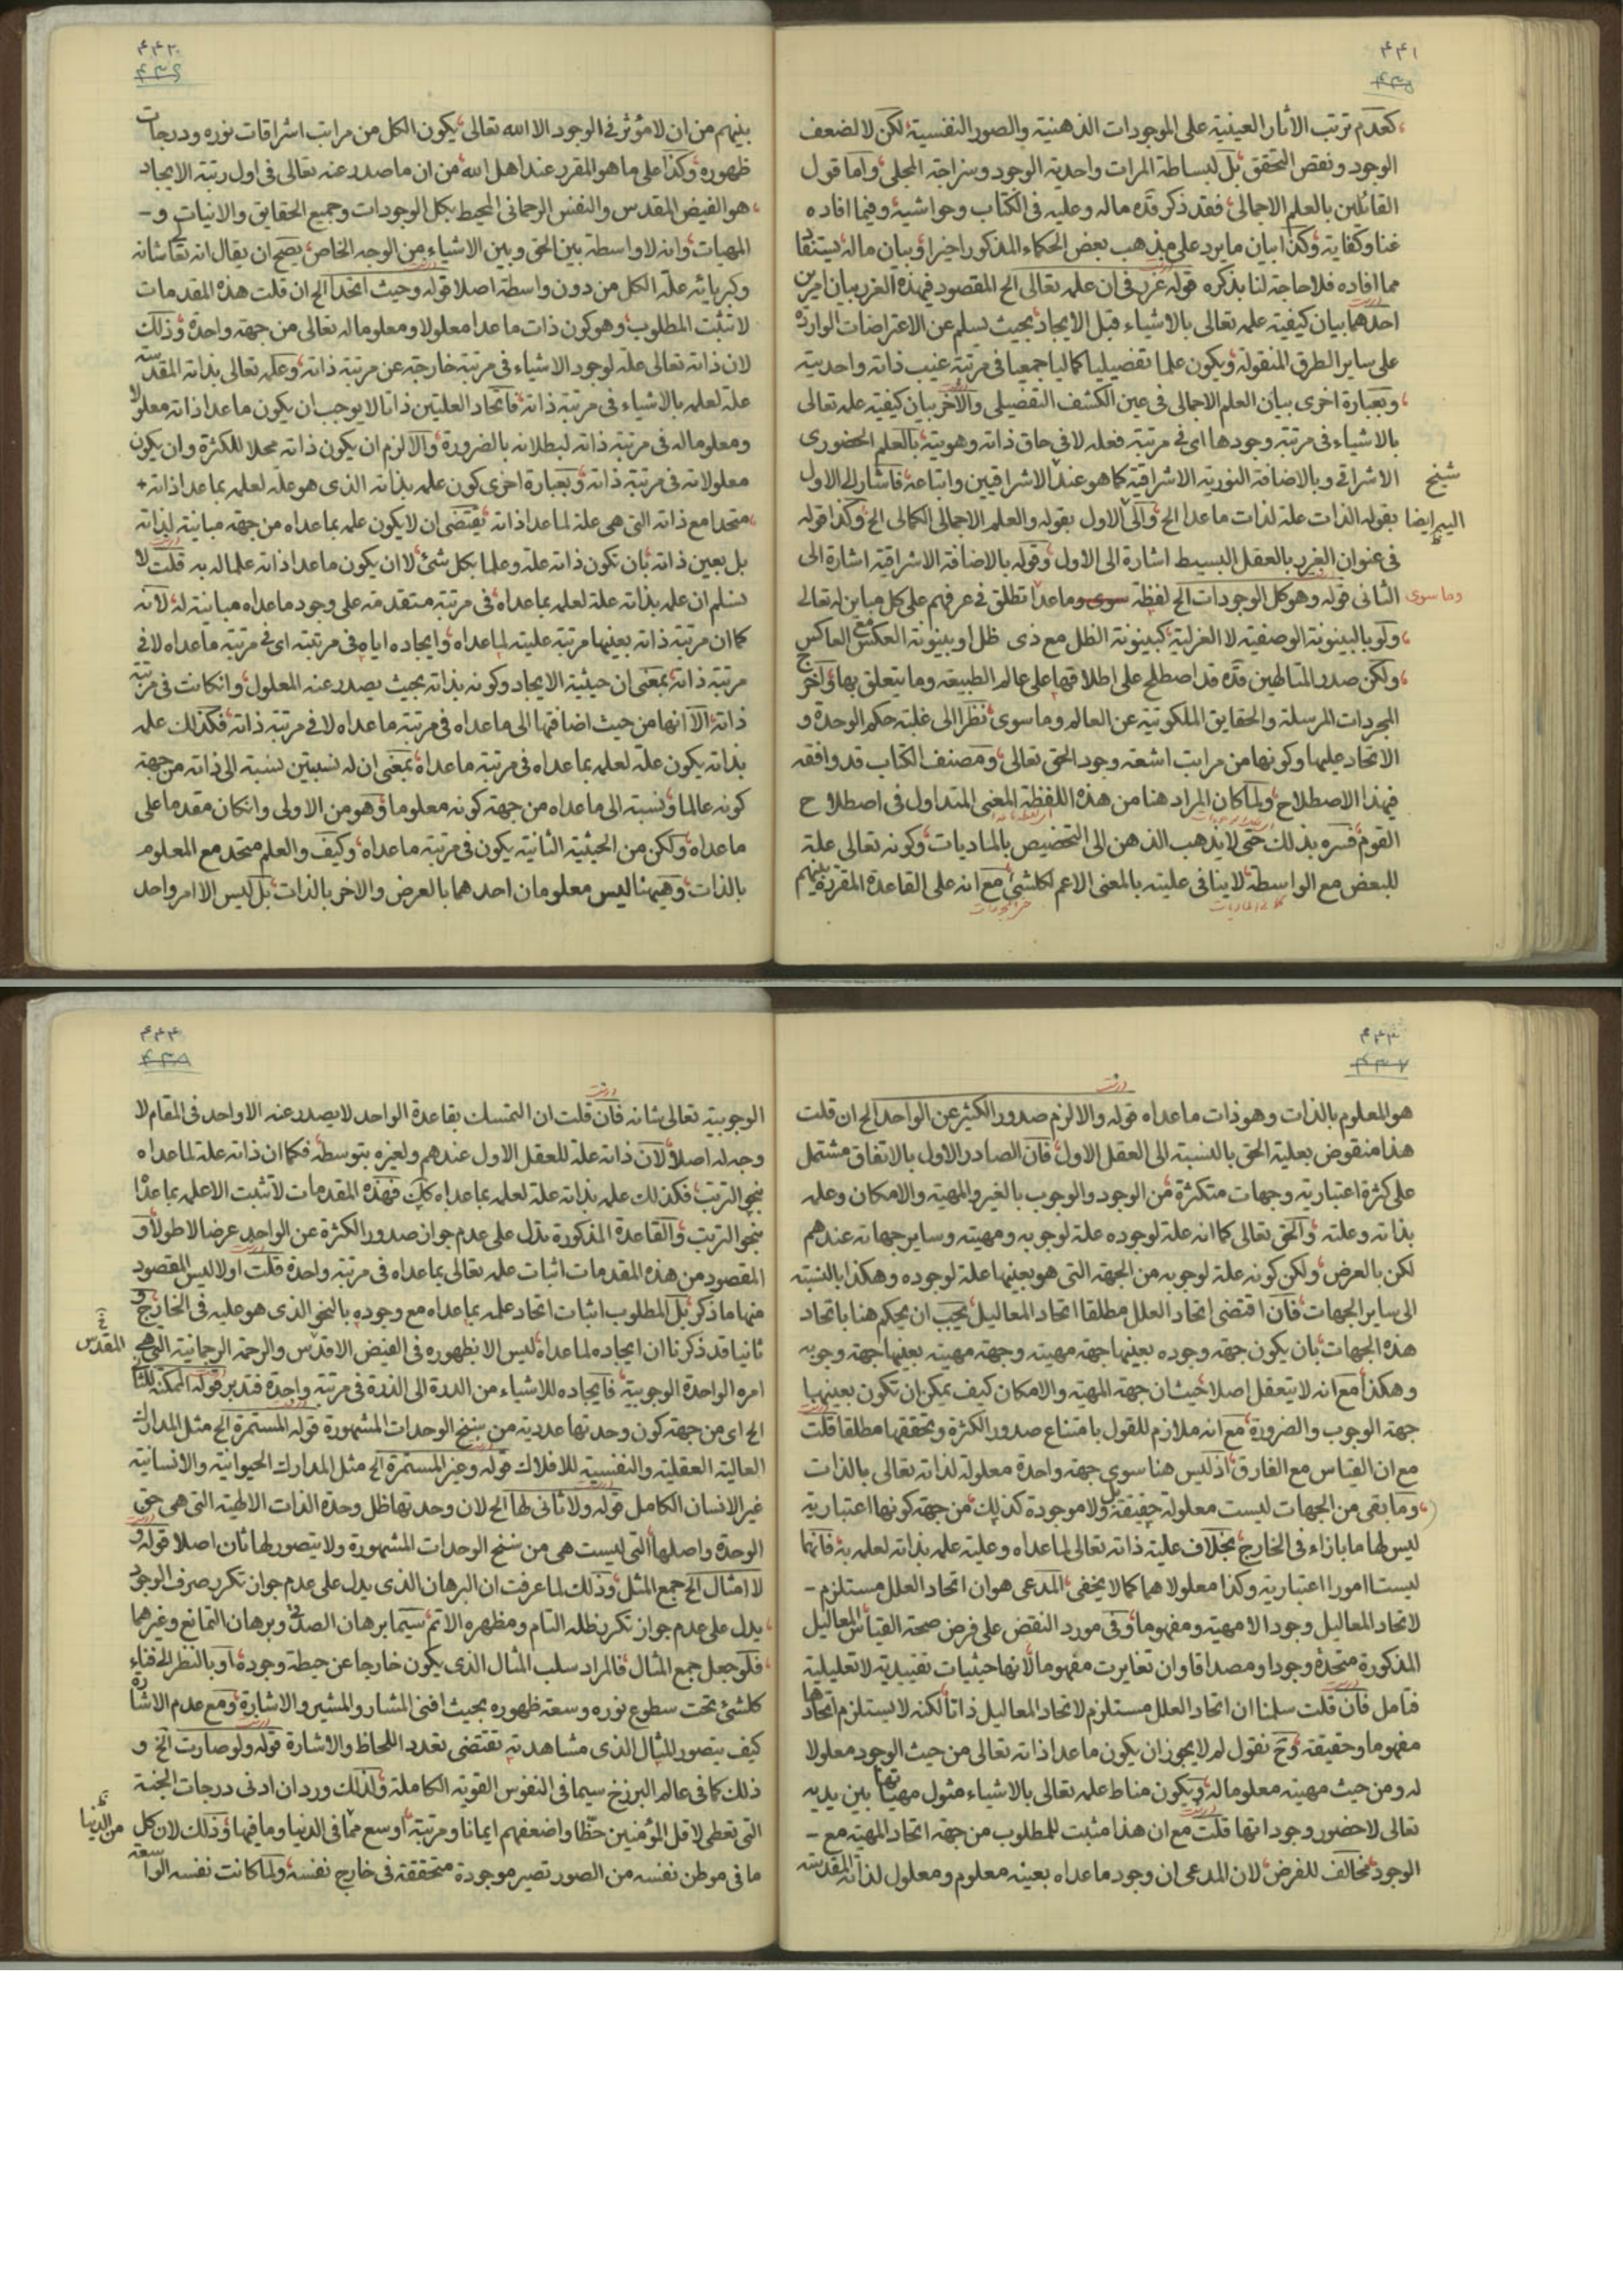 ۴۴۱
۴۳۵
كعدم ترتب الآثار العينية على الموجودات الذهنية والصور النفسية لكن لا لضعف
الوجود ونقص التحقق بل لبساطة المرات واحدية الوجود وسزاجة المجلى واما قول
القائلين بالعلم الاجمالى فقد ذكر قده ماله وعليه فى الكتاب وحواشيه وفيما افاده
غنا وكفاية وكذا بيان ما يرد على مذهب بعض الحكماء المذكور اخيرا وبيان ماله يستنقاد
مما افاده فلا حاجة لنا بذكره قوله غرر فى ان علمه تعالى الخ المقصود فى هذه الغرر بيان امرين
احدهما بيان كيفية علمه تعالى بالاشياء قبل الايجاد بحيث يسلم عن الاعتراضات الواردة
على ساير الطرق المنقولة ويكون علما تفصيليا كماليا جمعيا فى مرتبة غيب ذاته واحديته
وبعبارة اخرى بيان العلم الاجمالى فى عين الكشف التفصيلى والآخر بيان كيفية علمه تعالى
بالاشياء فى مرتبة وجودها اى فى مرتبة فعله لا فى حاق ذاته وهويته بالعلم الحضورى
الاشراقى وبالاضافة النورية الاشراقية كما هو عند شيخ الاشراقيين واتباعه فاشار الى الاول
بقوله الذات علة لذات ماعدا الخ والى الاول اليه ايضا بقوله والعلم الاجمالى الكمالى الخ وكذا قوله
فى عنوان الغرر بالعقل البسيط اشارة الى الاول وقوله بالاضافة الاشراقية اشارة الى
الثانى قوله وهو كل الوجودات الخ لفظة سوى وما عدا وما سوى تطلق فى عرفهم على كل مباين له تعالى
ولو بالبينونة الوصفية لا العزلية كبينونة الظل مع ذى ظل او بينونة العكس مع العاكس
ولكن صدر المتالهين قده قد اصطلح على اطلاقها على عالم الطبيعة وما يتعلق بها واخرج
المجردات المرسلة والحقايق الملكوتية عن العالم وما سوى نظرا الى غلبة حكم الوحدة و
الاتحاد عليها وكونها من مراتب اشعة وجود الحق تعالى ومصنف الكتاب قد وافقه
فى هذا الاصطلاح ولما كان المراد هنا من هذه اللفظة المعنى المتداول فى اصطلاح
القوم فسره بذلك حتى لا يذهب الذهن الى التخصيص بالماديات وكونه تعالى علة
للبعض مع الواسطة لا ينافى عليته بالمعنى الاعم لكلشئ مع انه على القاعدة المقررة بينهم
۴۴۲
۴۳۶
بينهم من ان لا مؤثر فى الوجود الا الله تعالى يكون الكل من مراتب اشراقات نوره ودرجات
ظهوره وكذا على ما هو المقرر عند اهل الله من ان ما صدر عنه تعالى فى اول رتبة الايجاد
هو الفيض المقدس والنفس الرحمانى المحيط بكل الوجودات وجميع الحقايق والانيات و
المهيات وانه لا واسطة بين الحق وبين الاشياء من الوجه الخاص يصح ان يقال انه تعالى شانه
وكبريائه علة الكل من دون واسطة اصلا قوله وحيث اتحدا الخ ان قلت هذه المقدمات
لا تثبت المطلوب وهو كون ذات ماعدا معلولا ومعلوما له تعالى من جهة واحدة وذلك
لان ذاته تعالى علة لوجود الاشياء فى مرتبة خارجة عن مرتبة ذاته وعلمه تعالى بذاته المقدسة
علة لعلمه بالاشياء فى مرتبة ذاته فاتحاد العلتين ذاتا لا يوجب ان يكون ماعدا ذاته معلولا
ومعلوما له فى مرتبة ذاته لبطلانه بالضرورة والا لزم ان يكون ذاته محلا للكثرة وان يكون
معلولاته فى مرتبة ذاته وبعبارة اخرى كون علمه بذاته الذى هو علة لعلمه بماعدا ذاته
متحدا مع ذاته التى هى علة لماعدا ذاته يقتضى ان لا يكون علمه بماعداه من جهة مباينة لذاته
بل بعين ذاته بان تكون ذاته علة وعلما بكل شئ لا ان يكون ماعدا ذاته علما له به قلت لا
نسلم ان علمه بذاته علة لعلمه بماعداه فى مرتبة متقدمة على وجود ماعداه مباينة له لانه
كما ان مرتبة ذاته بعينها مرتبة علية لماعداه وايجاده اياه فى مرتبته اى فى مرتبة ماعداه لا فى
مرتبة ذاته بمعنى ان حيثية الايجاد وكونه بذاته بحيث يصدر عنه المعلول وانكانت فى مرتبة
ذاته الا انها من حيث اضافتها الى ماعداه فى مرتبة ماعداه لا فى مرتبة ذاته فكذلك علمه
بذاته يكون علة لعلمه بماعداه فى مرتبة ماعداه بمعنى ان له نسبتين نسبة الى ذاته من جهة
كونه عالما ونسبة الى ماعداه من جهة كونه معلوما وهو من الاولى وانكان مقدما على
ماعداه ولكن من الحيثية الثانية يكون فى مرتبة ماعداه وكيف والعلم متحد مع المعلوم
بالذات وهيهنا ليس معلومان احدهما بالعرض والآخر بالذات بل ليس الا امر واحد
۴۴۳
۴۳۷
هو المعلوم بالذات وهو ذات ماعداه قوله والا لزم صدور الكثير عن الواحد الخ ان قلت
هذا منقوض بعلية الحق بالنسبة الى العقل الاول فان الصادر الاول بالاتفاق مشتمل
على كثرة اعتبارية وجهات متكثرة من الوجود والوجوب بالغير والمهية والامكان وعلمه
بذاته وعلته والحق تعالى كما انه علة لوجوده علة لوجوبه ومهيته وساير جهاته عندهم
لكن بالعرض ولكن كونه علة لوجوبه من الجهة التى هو بعينها علة لوجوده وهكذا بالنسبة
الى ساير الجهات فان اقتضى اتحاد العلل مطلقا اتحاد المعاليل يجب ان يحكم هنا باتحاد
هذه الجهات بان يكون جهة وجوده بعينها جهة مهيته وجهة مهيته بعينها جهة وجوبه
وهكذا مع انه لا يتعقل اصلا حيث ان جهة المهية والامكان كيف يمكن ان تكون بعينها
جهة الوجوب والضرورة مع انه ملازم للقول بامتناع صدور الكثرة وتحققها مطلقا قلت
مع ان القياس مع الفارق اذ ليس هنا سوى جهة واحدة معلولة لذاته تعالى بالذات
وما بقى من الجهات ليست معلولة حقيقة بل ولا موجودة كذلك من جهة كونها اعتبارية
ليس لها ما بازاء فى الخارج بخلاف علية ذاته تعالى لماعداه وعلية علمه بذاته لعلمه به فانهما
ليستا امورا اعتبارية وكذا معلولاهما كما لا يخفى المدعى هو ان اتحاد العلل مستلزم
لاتحاد المعاليل وجودا لا مهية ومفهوما وفى مورد النقض على فرض صحة القياس المعاليل
المذكورة متحدة وجودا ومصداقا وان تغايرت مفهوما لانها حيثيات تقييدية لا تعليلية
فتامل فان قلت سلمنا ان اتحاد العلل مستلزم لاتحاد المعاليل ذاتا لكنه لا يستلزم اتحادها
مفهوما وحقيقة وح نقول لم لا يجوز ان يكون ماعدا ذاته تعالى من حيث الوجود معلولا
له ومن حيث مهيته معلوما له ويكون مناط علمه تعالى بالاشياء مثول مهياتها بين يديه
تعالى لا حضور وجوداتها قلت مع ان هذا مثبت للمطلوب من جهة اتحاد المهية مع
الوجود مخالف للفرض لان المدعى ان وجود ماعداه بعينه معلوم ومعلول لذاته المقدسة
۴۴۴
۴۳۸
الوجوبية تعالى شانه فان قلت ان التمسك بقاعدة الواحد لا يصدر عنه الا واحد فى المقام لا
وجه له اصلا لان ذاته علة للعقل الاول عندهم ولغيره بتوسطه فكما ان ذاته علة لماعداه
بنحو الترتب فكذلك علمه بذاته علة لعلمه بماعداه كك فهذه المقدمات لا تثبت الا علمه بماعداه
بنحو الترتب والقاعدة المذكورة تدل على عدم جواز صدور الكثرة عن الواحد عرضا لا طولا و
المقصود من هذه المقدمات اثبات علمه تعالى بماعداه فى مرتبة واحدة قلت اولا ليس المقصود
منها ما ذكر بل المطلوب اثبات اتحاد علمه بماعداه مع وجوده بالنحو الذى هو عليه فى الخارج و
ثانيا قد ذكرنا ان ايجاده لماعداه ليس الا بظهوره فى الفيض الاقدس والرحمة الرحمانية التى هى
المقدس
امره الواحدة الوجوبية فايجاده للاشياء من الدرة الى الذرة فى مرتبة واحدة فتدبر قوله الممكنة للثانى
الخ اى من جهة كون وحدتها عددية من سنخ الوحدات المشهورة قوله المستمرة الخ مثل المدارك
العالية العقلية والنفسية للافلاك قوله وغير المستمرة الخ مثل المدارك الحيوانية والانسانية
غير الانسان الكامل قوله ولا ثانى لها الخ لان وحدتها ظل وحدة الذات الالهية التى هى حق
الوحدة واصلها التى ليست هى من سنخ الوحدات المشهورة ولا يتصور لها ثان اصلا قوله و
لا امثال الخ جمع المثل وذلك لما عرفت ان البرهان الذى يدل على عدم جواز تكرر صرف الوجود
يدل على عدم جواز تكرر ظله التام ومظهره الاتم سيما برهان الصرف وبرهان التمانع وغيرهما
فلو جعل جمع المثال فالمراد سلب المثال الذى يكون خارجا عن حيطة وجوده او بالنظر الى فناء
كلشئ تحت سطوع نوره وسعة ظهوره بحيث افنى المشار والمشير والاشارة ومع عدم الاشارة
كيف يتصور المثال الذى مشاهدته تقتضى تعدد اللحاظ والاشارة قوله ولو صارت الخ و
ذلك كما فى عالم البرزخ سيما فى النفوس القوية الكاملة ولذلك ورد ان ادنى درجات الجنة
التى تعطى لاقل المؤمنين حظا واضعفهم ايمانا ومرتبة اوسع مما فى الدنيا وما فيها وذلك لان كل
من الدنيا
ما فى موطن نفسه من الصور تصير موجودة متحققة فى خارج نفسه ولما كانت نفسه الواسعة